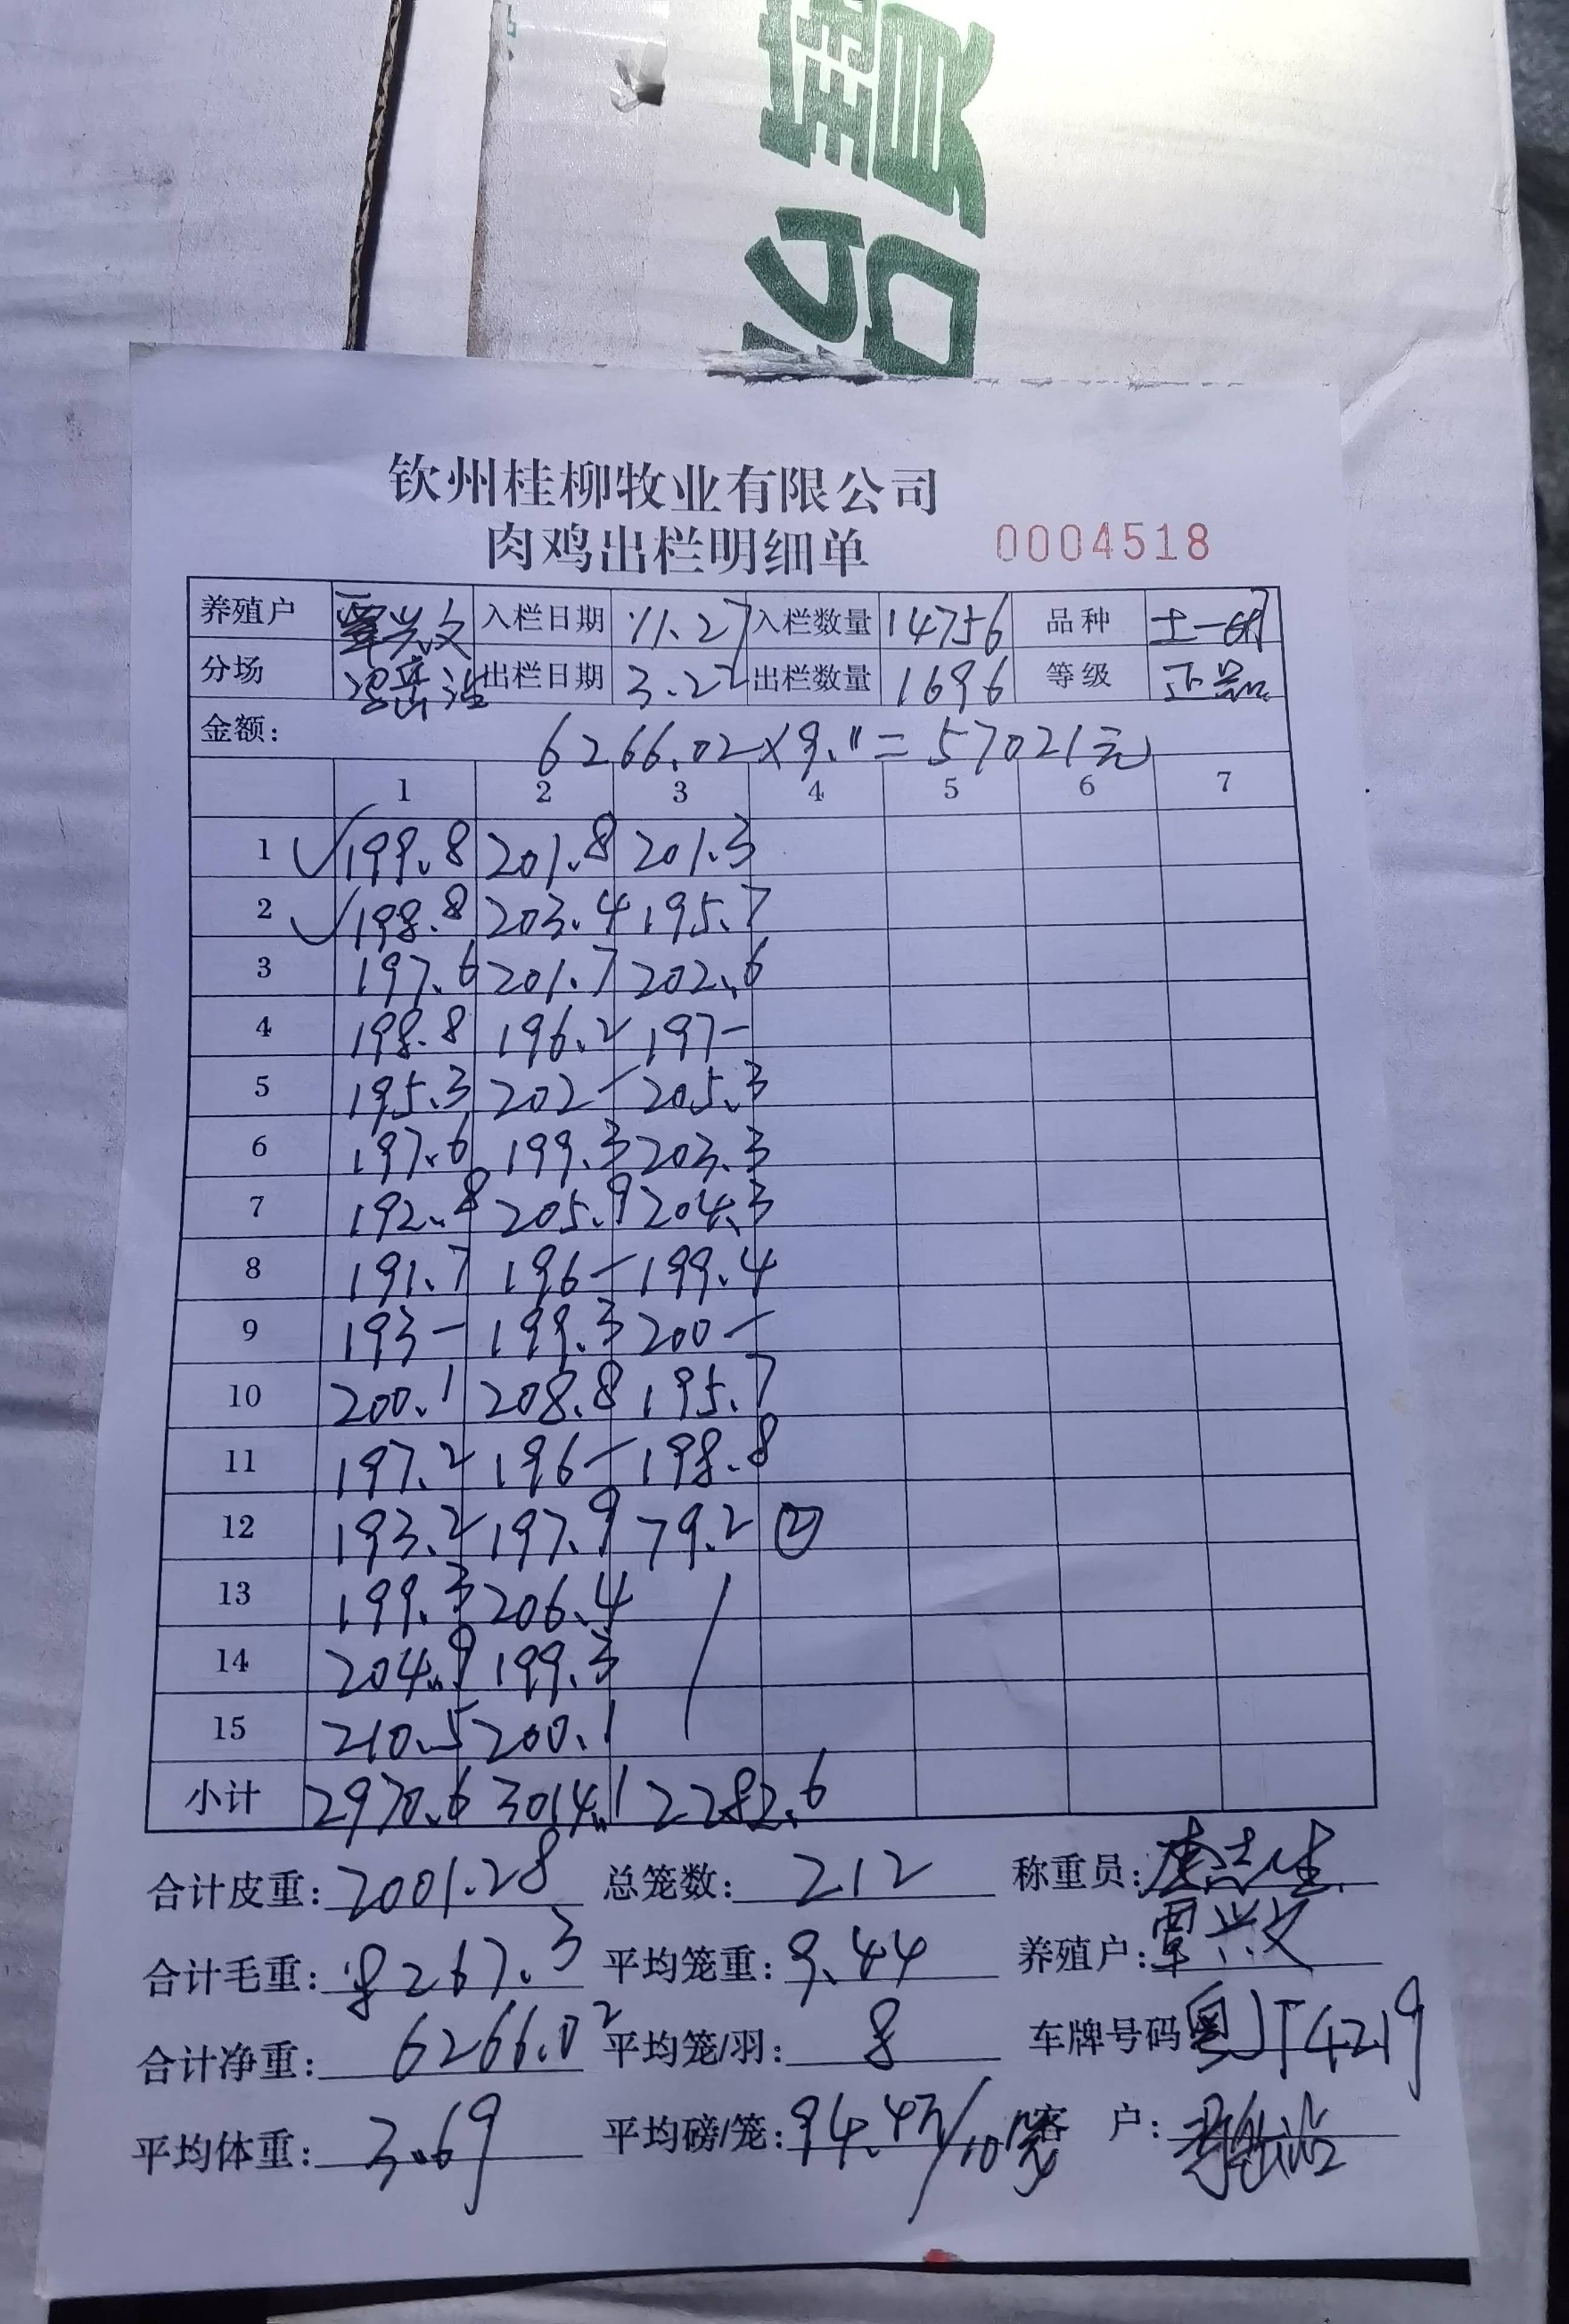 钦州桂柳牧业有限公司
肉鸡出栏明细单 0004518
养殖户 覃兴文 入栏日期 11.27 入栏数量 14756 品种 土一
分场 出栏日期 3.22 出栏数量 1696 等级 正品
金额: 6266.02×9.11=57021元
1 2 3 4 5 6 7
1 199.8 201.8 201.3
2 198.8 203.4 195.7
3 197.6 201.7 202.6
4 198.8 196.2 197-
5 195.3 202- 205.3
6 197.6 199.3 203.3
7 192.8 205.9 204.3
8 191.7 196- 199.4
9 193- 199.3 200-
10 200.1 208.8 195.7
11 197.2 196- 198.8
12 193.2 197.9 79.2 ②
13 199.3 206.4
14 204.9 199.3
15 210.5 200.1
小计 2970.6 3014.1 2282.6
合计皮重: 2001.28 总笼数: 212 称重员:
合计毛重: 8267.3 平均笼重: 9.44 养殖户: 覃兴文
合计净重: 6266.02 平均笼/羽: 8 车牌号码 粤JT4219
平均体重: 3.69 平均磅/笼: 94.4斤/10笼 客 户: